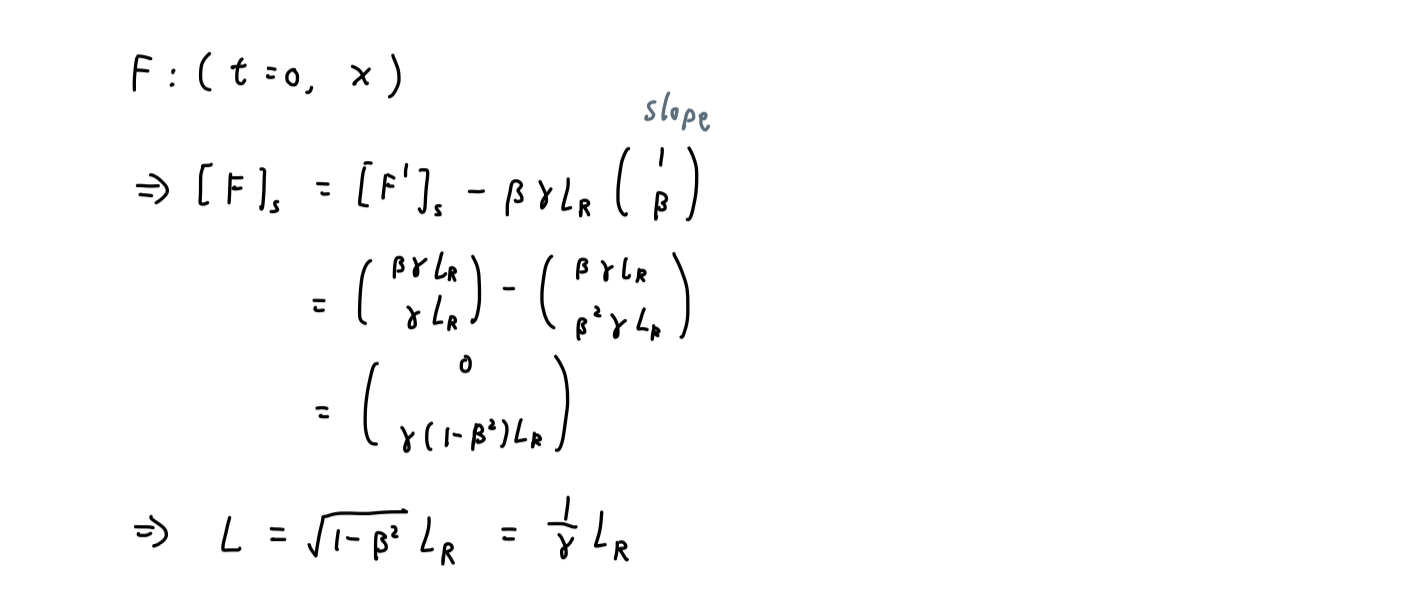 F : ( t = 0, x )
slope
⇒ [F]ₛ = [F']ₛ - βγL_R ( 1 β )
= ( βγL_R γL_R ) - ( βγL_R β²γL_R )
= ( 0 γ(1-β²)L_R )
⇒ L = √(1-β²) L_R = 1/γ L_R